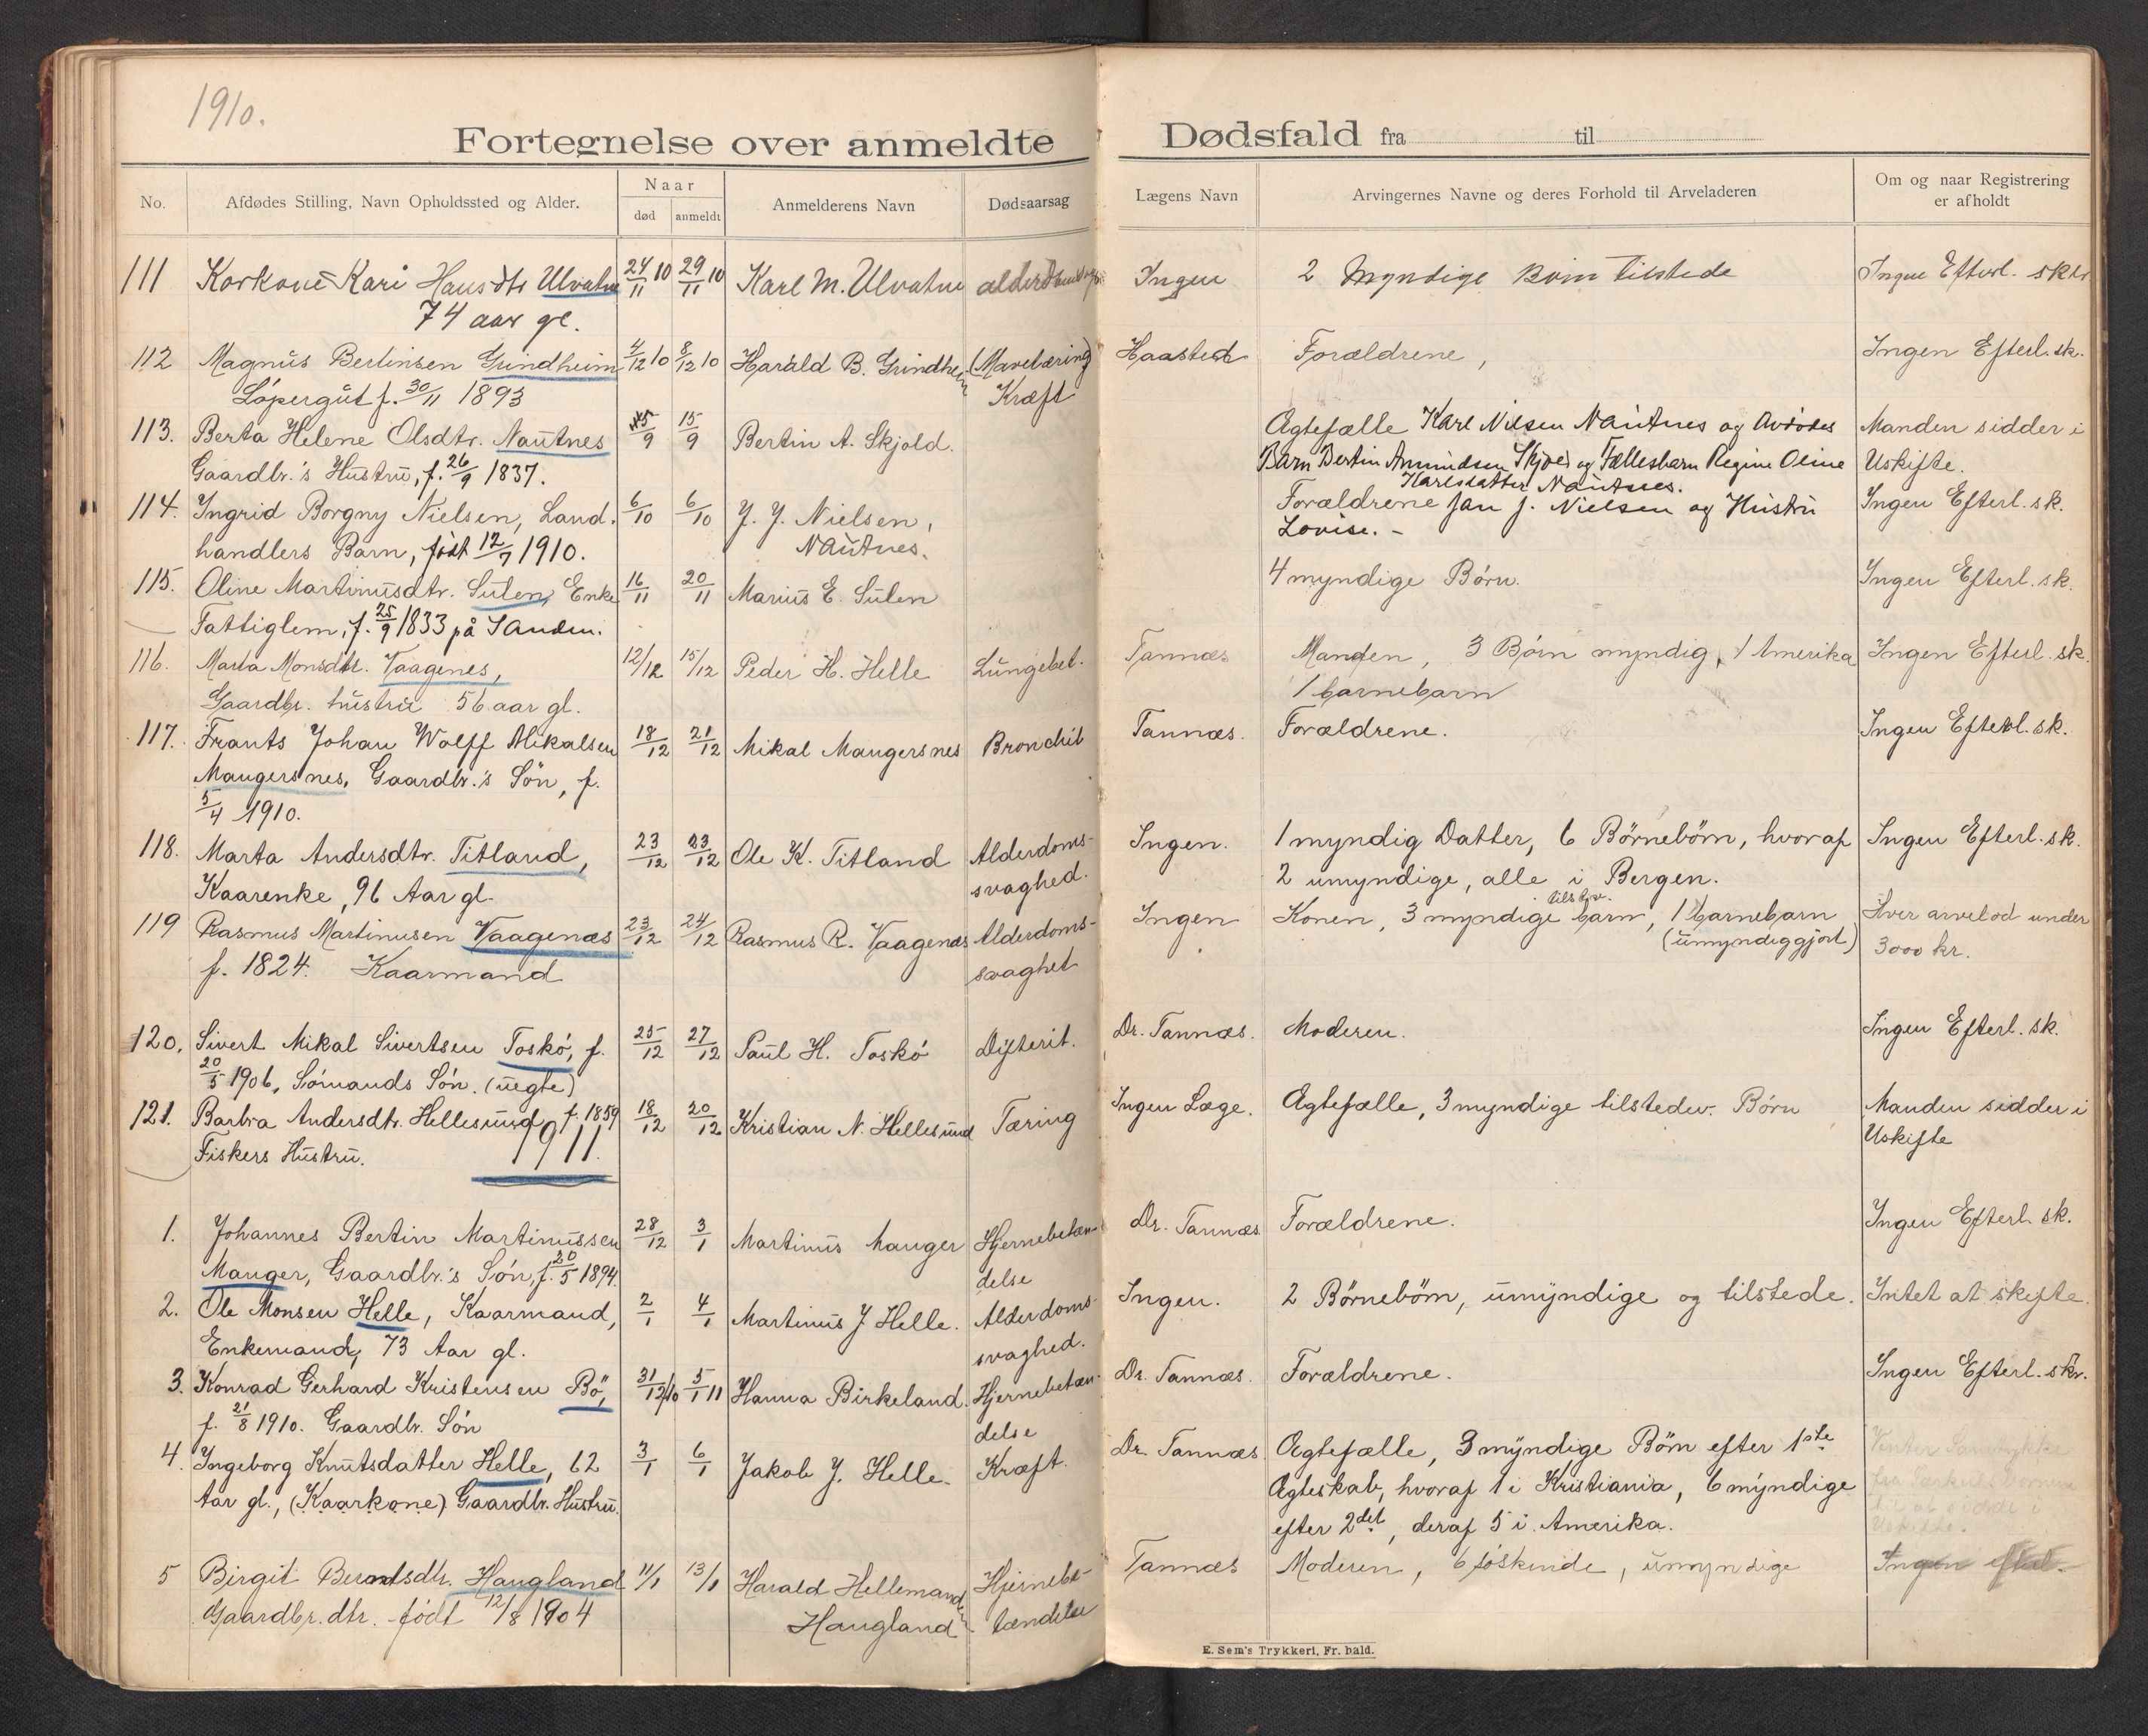 1910.
Fortegnelse over anmeldte Dødsfald fra til
No. Afdødes Stilling, Navn Opholdssted og Alder. Naar død anmeldt Anmelderens Navn Dødsaarsag Lægens Navn Arvingernes Navne og deres Forhold til Arveladeren Om og naar Registrering er afholdt
111 Korkone Kari Hansdtr Ulvatne 24/11 10 29/11 10 Karl M. Ulvatne Ingen 2 Myndige Börn tilstede Ingen Efterl. skn
74 aar gl.
112 Magnus Bertinsen Grindheim 4/12 10 8/12 10 Harald B. Grindheim (Mavetæring) Haasted Forældrene,  Ingen Efterl. sk.
Löpergut f. 30/11 1893 Kræft
113. Berta Helene Olsdtr. Nautnes 5/9 15/9 Bertin A. Skjold. Ægtefælle Karl Nilsen Nautnes og Avdödes Manden sidder i
Gaardbr.'s Hustru, f. 26/9 1837. Barn Bertin Anmindsen Skjold og Fællesbarn Regine Oline Uskifte.
Karlsdatter Nautnes.
114. Ingrid Borgny Nielsen, Land. 6/10 6/10 J. J. Nielsen, Forældrene Jan J. Nielsen og Hustru Ingen Efterl. sk.
handlers Barn, född 12/7 1910. Nautnes. Lovise. -
115. Oline Martinusdtr. Sulen, Enke 16/11 20/11 Marius E. Sulen 4 myndige Børn. Ingen Efterl. sk.
Fattiglem, f. 25/9 1833 på Sanden.
116. Marta Monsdtr. Vaagenes, 12/12 15/12 Peder H. Helle Lungebet. Tannæs Manden, 3 Børn myndig, 1 Amerika Ingen Efterl. sk.
Gaardbr. hustru 56 aar gl. 1 barnebarn
117. Frants Johan Wolff Mikalsen 18/12 21/12 Mikal Maugersnes Bronchit Tannæs. Forældrene. Ingen Efterl. sk.
Maugersnes, Gaardbr.'s Sön, f.
5/4 1910.
118. Marta Andersdtr. Titland, 23/12 23/12 Ole K. Titland Alderdoms- Ingen. 1 myndig Datter, 6 Børnebörn, hvoraf Ingen Efterl. sk.
Kaarenke, 96 Aar gl. svaghed. 2 umyndige, alle i Bergen.
119 Rasmus Martinusen Vaagenæs 23/12 24/12 Rasmus R. Vaagenæs Alderdoms- Ingen Konen, 3 myndige tilstev. barn, 1 barnebarn Hver arvelod under
f. 1824. Kaarmand svaghet (umyndiggjort) 3000 kr.
120. Sivert Mikal Sivertsen Toskö, f. 25/12 27/12 Paul H. Toskö Difterit. Dr. Tannæs. Moderen. Ingen Efterl. sk.
20/5 1906, Sömands Sön. (uegte)
121. Barbra Andersdtr. Hellesund f. 1859 18/12 20/12 Kristian N. Hellesund Tæring Ingen Læge. Ægtefælle, 3 myndige tilstedev. Børn Manden sidder i
Fiskers Hustru. 1911. Uskifte
1. Johannes Bertin Martinussen 28/12 3/1 Martinus Mauger Hjernebetæn- Dr. Tannæs Forældrene. Ingen Efterl. sk.
Mauger, Gaardbr.'s Sön, f. 20/5 1894. delse
2. Ole Monsen Helle, Kaarmand, 2/1 4/1 Martinus J. Helle. Alderdoms- Ingen. 2 Børnebörn, umyndige og tilstede. Intet at skifte.
Enkemand, 73 Aar gl. svaghed.
3. Konrad Gerhard Kristensen Bö, 31/12 10 5/1 11 Hanna Birkeland. Hjernebetæn- Dr. Tannæs. Forældrene. Ingen Efterl. skr.
f. 21/8 1910. Gaardbr. Sön delse
4. Ingeborg Knutsdatter Helle, 62 3/1 6/1 Jakob J. Helle. Kræft. Dr. Tannæs Ægtefælle, 3 myndige Börn efter 1ste
Aar gl., (Kaarkone) Gaardbr. Hustru. Ægteskab, hvoraf 1 i Kristiania, 6 myndige
efter 2det, deraf 5 i Amerika. Uskifte.
5 Birgit Berntsdtr. Haugland 11/1 13/1 Harald Hellemand Hjernebe- Tannæs Moderen, 6 söskende, umyndige Ingen efterl.
Gaardbr. dtr. född 12/8 1904 Haugland tændelse
E. Sem's Trykkeri, Fr. hald.